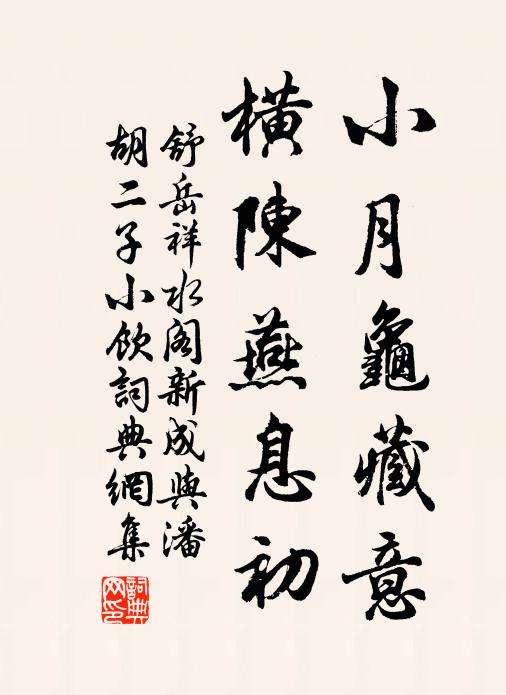 小月龜藏意
橫陳燕息初
舒岳祥水阁新成與潘
胡二子小飲詞典網集
詞典网印